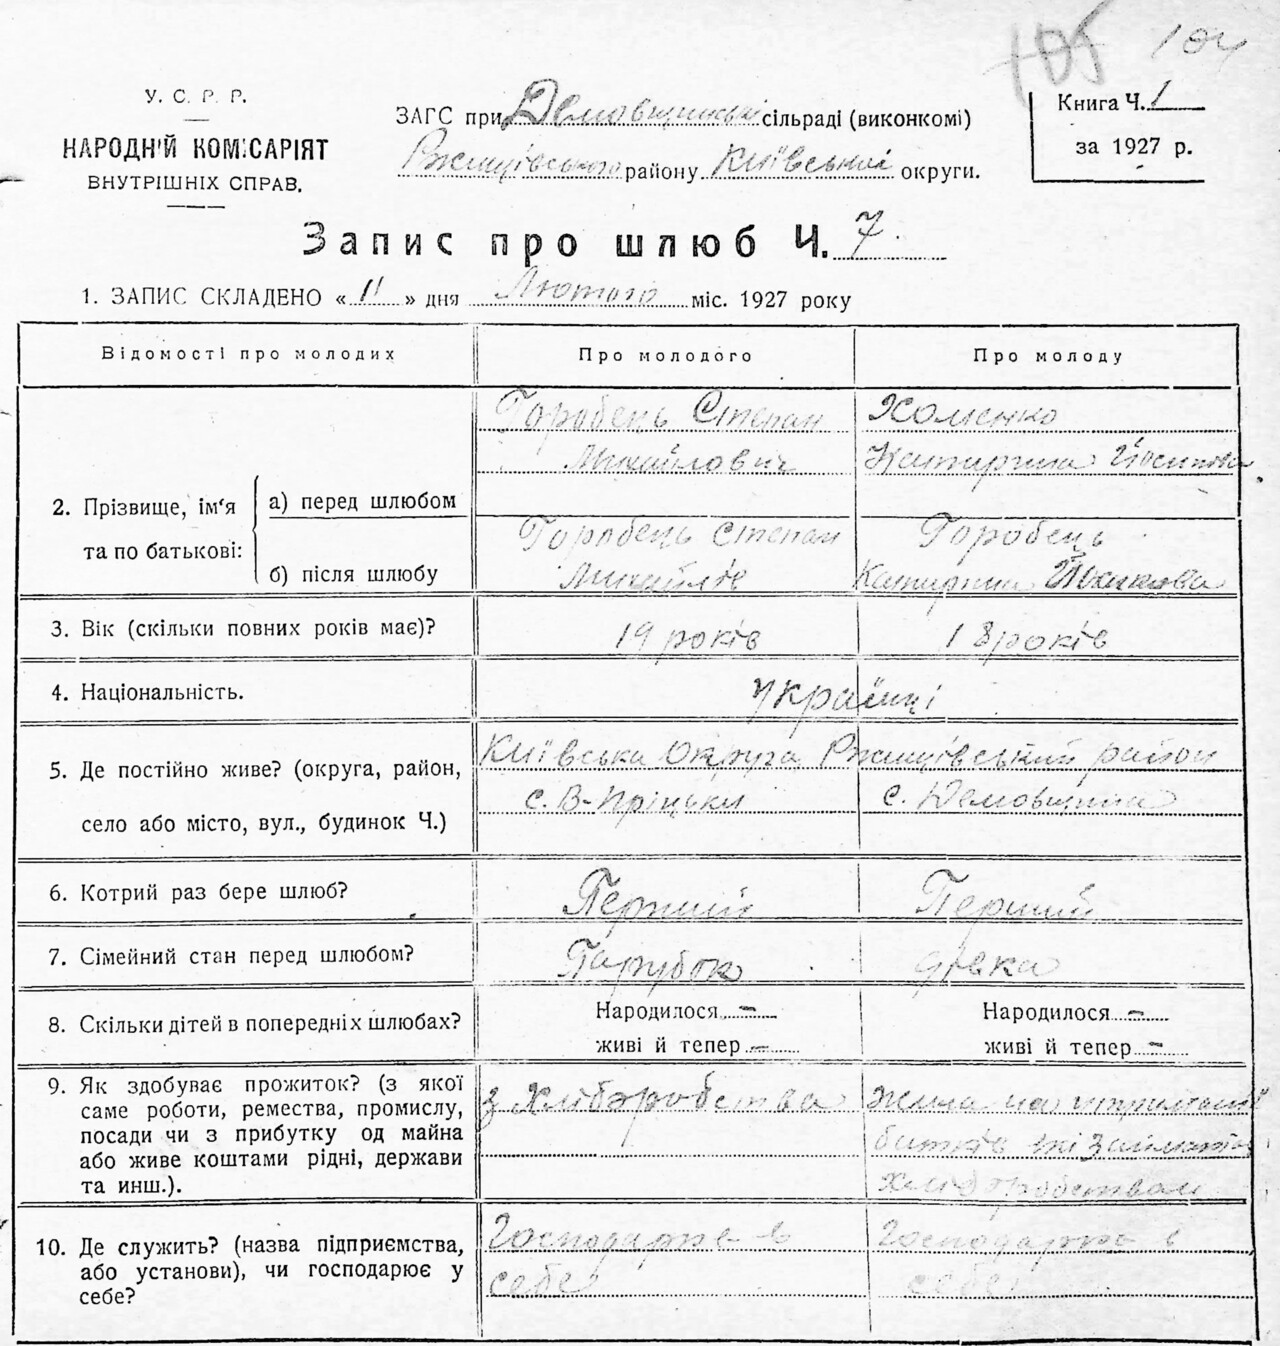 105 104
У. С. Р. Р.
НАРОДНІЙ КОМІСАРІЯТ
ВНУТРІШНІХ СПРАВ.
ЗАГС при Демовщинській сільраді (виконкомі)
Ржищівського району Київської округи.
Книга Ч. 1
за 1927 р.
Запис про шлюб Ч. 7
1. ЗАПИС СКЛАДЕНО « 11 » дня Лютого міс. 1927 року
Відомості про молодих
Про молодого
Про молоду
2. Прізвище, ім'я та по батькові:
а) перед шлюбом
Горобець Степан
Михайлович
Хоменко
Катерина Йосипова
б) після шлюбу
Горобець Степан
Михайлів
Горобець
Катерина Йосипова
3. Вік (скільки повних років має)?
19 років
18 років
4. Національність.
Українці
5. Де постійно живе? (округа, район,
село або місто, вул., будинок Ч.)
Київська округа Ржищівський район
с. В-Пріцьки
с. Демовщина
6. Котрий раз бере шлюб?
Перший
Перший
7. Сімейний стан перед шлюбом?
Парубок
дівка
8. Скільки дітей в попередніх шлюбах?
Народилося –
живі й тепер –
Народилося –
живі й тепер –
9. Як здобуває прожиток? (з якої
саме роботи, ремества, промислу,
посади чи з прибутку од майна
або живе коштами рідні, держави
та инш.).
з Хліборобства
Жила на утриманні
батьків які займались
хліборобством
10. Де служить? (назва підприємства,
або установи), чи господарює у
себе?
Господарює в
себе
Господарює в
себе